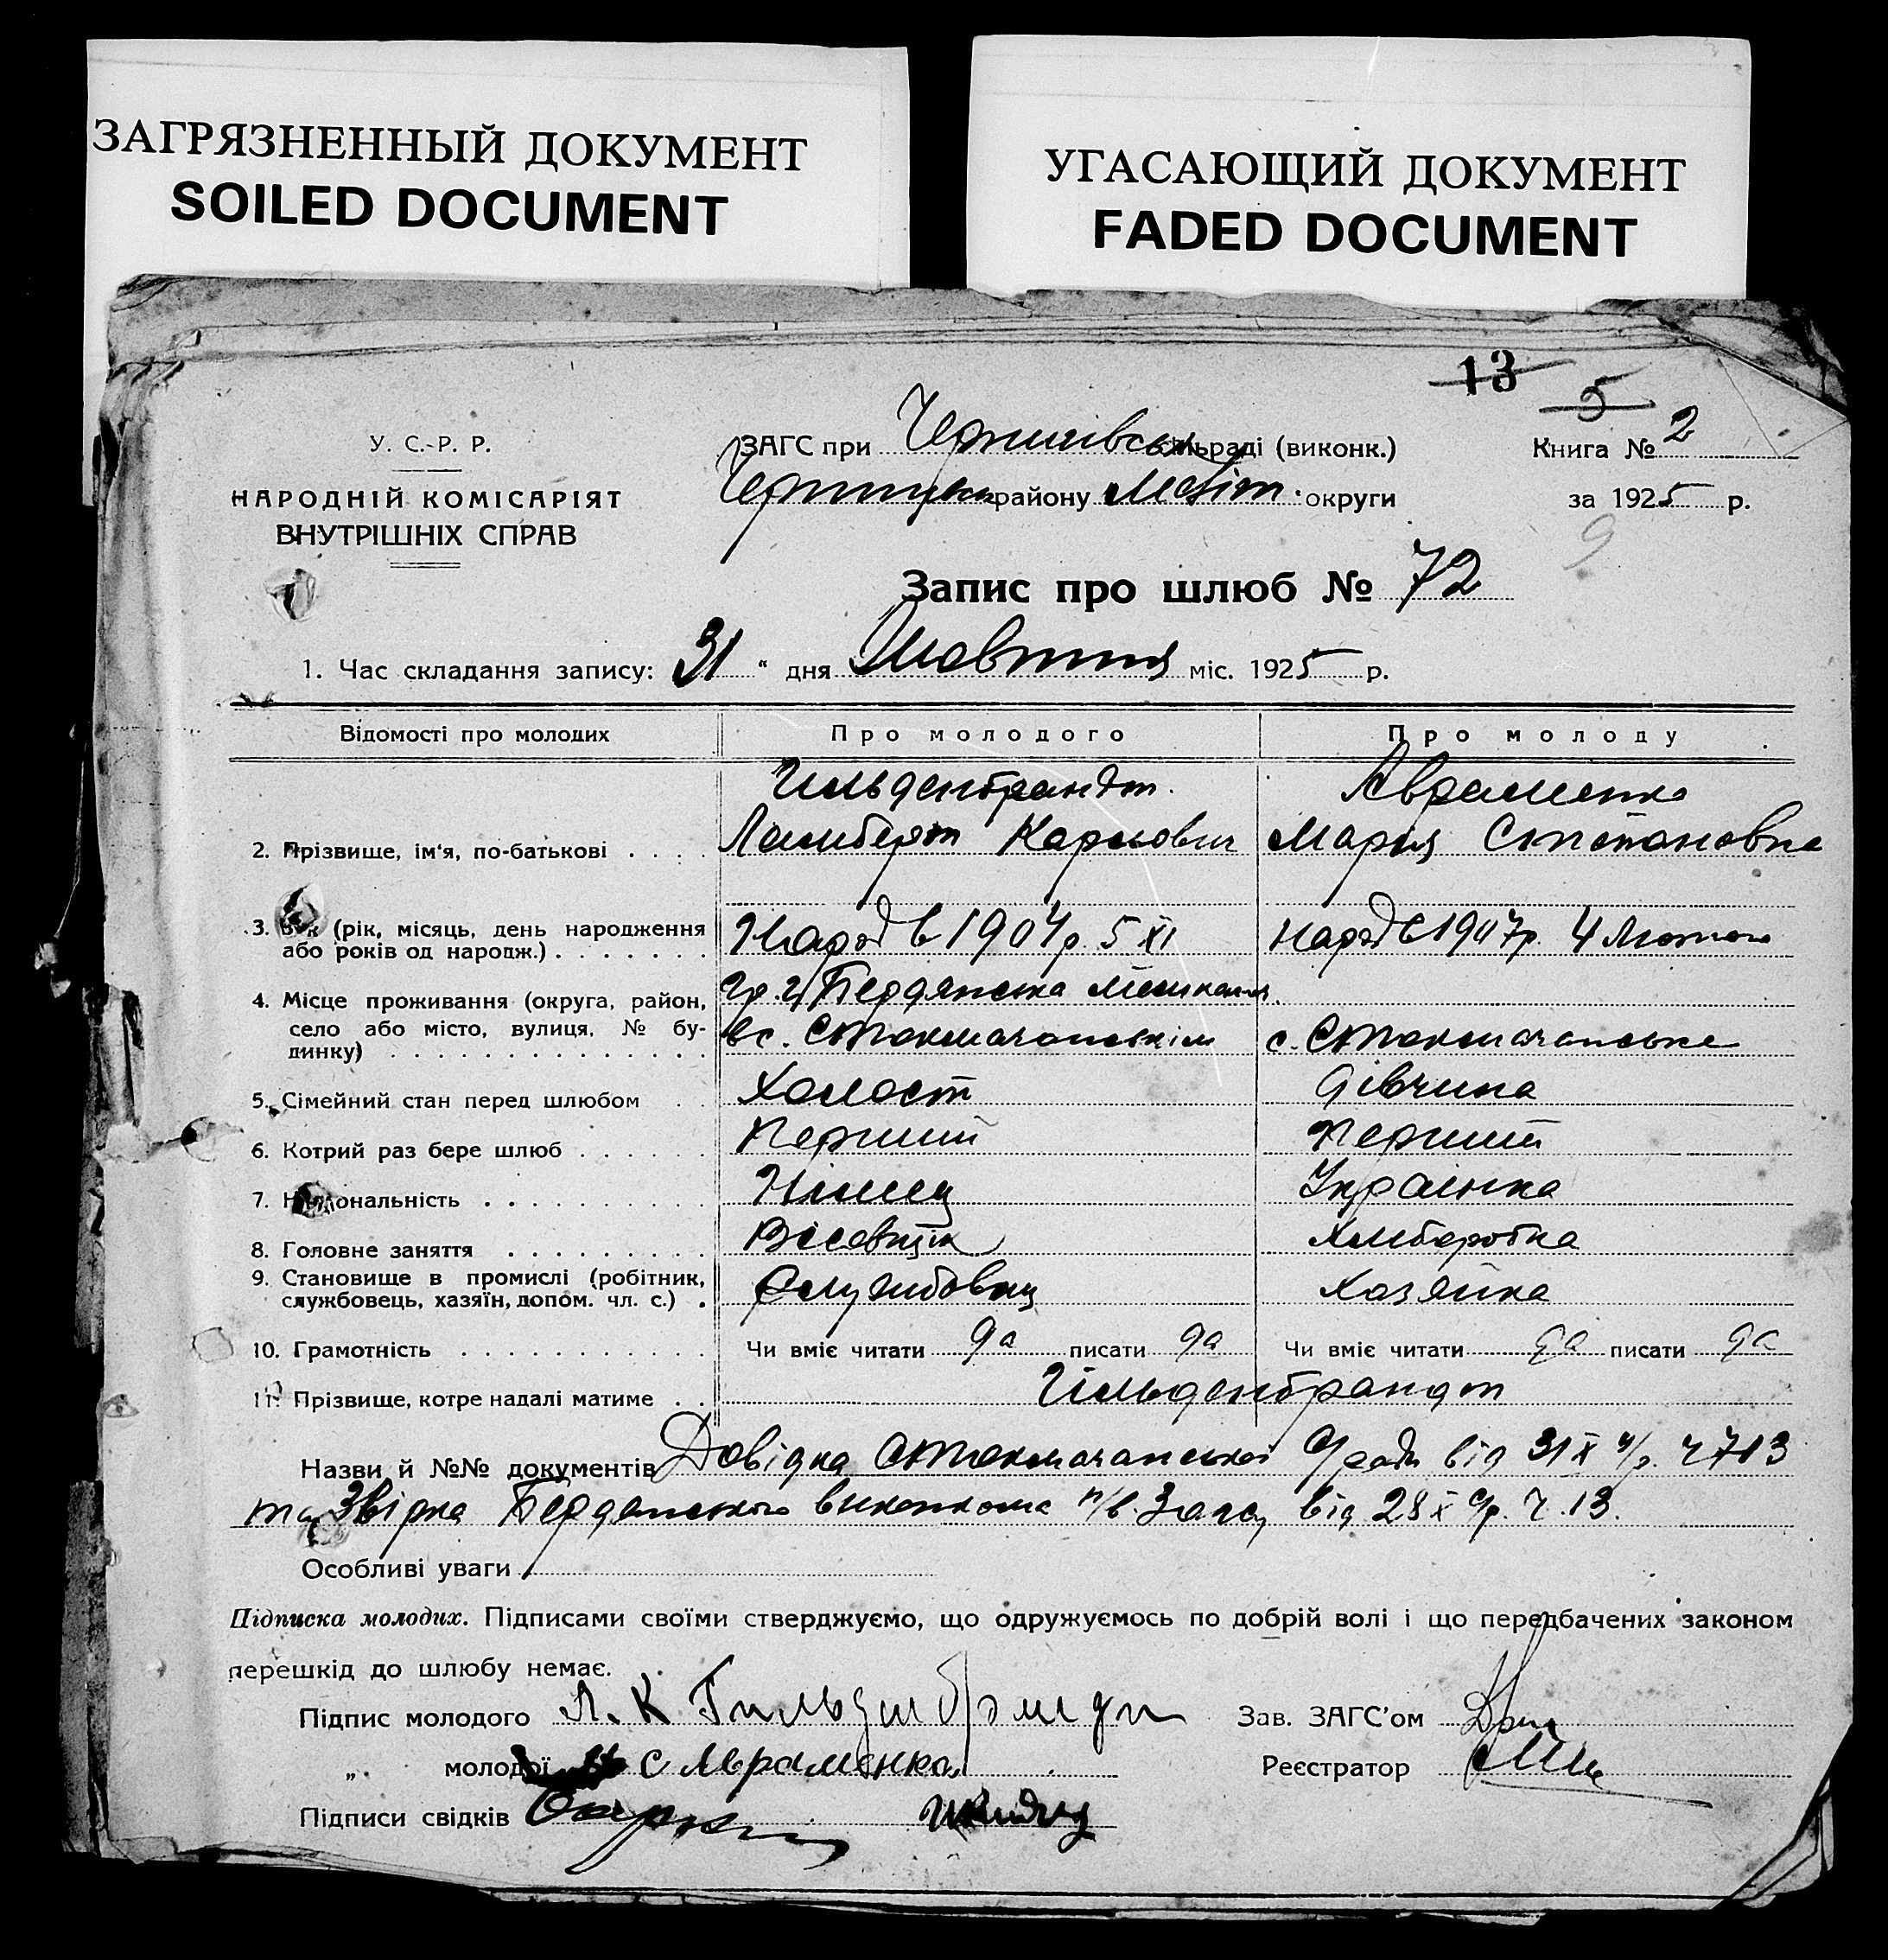 ЗАГРЯЗНЕННЫЙ ДОКУМЕНТ
SOILED DOCUMENT
УГАСАЮЩИЙ ДОКУМЕНТ
FADED DOCUMENT
13
5
У. С.-Р. Р.
НАРОДНІЙ КОМІСАРІЯТ
ВНУТРІШНІХ СПРАВ
ЗАГС при Чернигівськ сільраді (виконк.)
району Меліт. округи
Книга № 2
за 1925 р.
9
Запис про шлюб № 72
1. Час складання запису: 31 " дня Жовтня міс. 1925 р.
Відомості про молодих Про молодого Про молоду
Гильденбрандт. Авраменко
2. Прізвище, ім'я, по-батькові Ламберт Карлович Мария Степановна
3. Вік (рік, місяць, день народження або років од народж.) Народ в 1904 р. 5 XI Народ в 1907 р. 4 Лютого
4. Місце проживання (округа, район, село або місто, вулиця, № будинку) гр. г. Бердянська мешкан.
в с. Стокмачанським с. Стокмачанське
5. Сімейний стан перед шлюбом Холост дівчина
6. Котрий раз бере шлюб Перший Перший
7. Національність Німец Українка
8. Головне заняття Вісовщік Хлиборобка
9. Становище в промислі (робітник, службовець, хазяїн, допом. чл. с.) Службовец Хозяйка
10. Грамотність Чи вміє читати да писати да Чи вміє читати да писати да
11. Прізвище, котре надалі матиме Гільденбрандт
Назви й №№ документів Довідка Стокмачанської С/ради від 31 X ц/р. ч 713
та Звірка Бердянського виконкома п/в. Загс, від 28 X с/р. ч. 13.
Особливі уваги
Підписка молодих. Підписами своїми стверджуємо, що одружуємось по добрій волі і що передбачених законом
перешкід до шлюбу немає.
Підпис молодого Л. К Гильденбрандт Зав. ЗАГС'ом
„ молодої С Авраменко Реєстратор
Підписи свідків